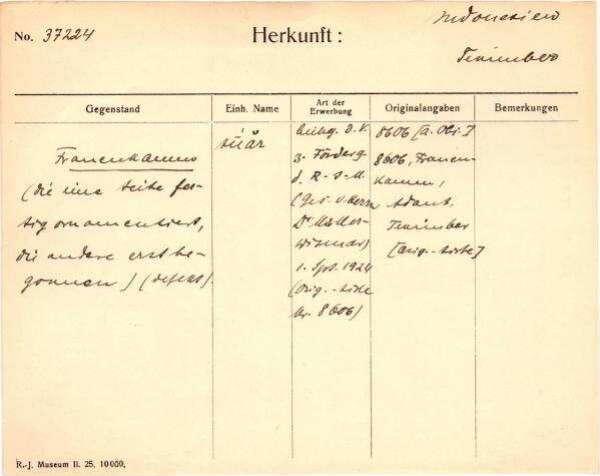 No. 37224
Herkunft:
Indonesien
Tenimber
Gegenstand
Einh. Name
Art der
Erwerbung
Originalangaben
Bemerkungen
Frauenkamm
(die eine Seite fer-
tig ornamentiert,
die andere erst be-
gonnen) (defekt).
D. V.
z. Förderg.
d. R-J-M
(Ges. v. Herrn
Dr Müller-
Wismar)
1. Spt. 1924
(Orig.-Liste
Nr. 8606)
8606 [a. Obj.]
8606, Frauen-
kamm,
Adaut,
Tenimber
[Orig.-Liste]
R.-J. Museum II. 25. 10000.